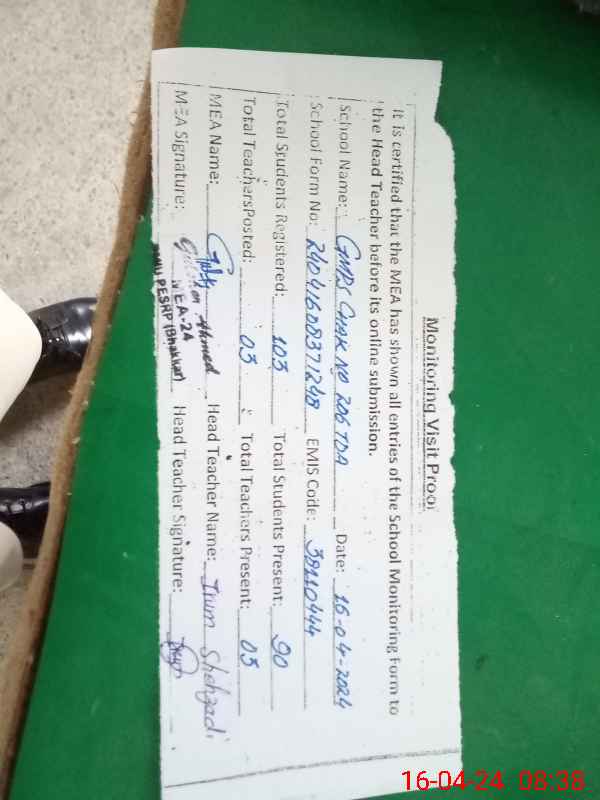 Monitoring Visit Proof
It is certified that the MEA has shown all entries of the School Monitoring Form to
the Head Teacher before its online submission.
School Name: GMPS CHAK NO 206 TDA Date: 16-04-2024
School Form No: 24041608371248 EMIS Code: 38110444
Total Students Registered: 103 Total Students Present: 90
Total TeachersPosted: 03 Total Teachers Present: 03
MEA Name: Head Teacher Name: Irum Shehzadi
MEA Signature: Head Teacher Signature:
Ahmed
MEA-24
PESRP (Bhakkar)
16-04-24 08:38